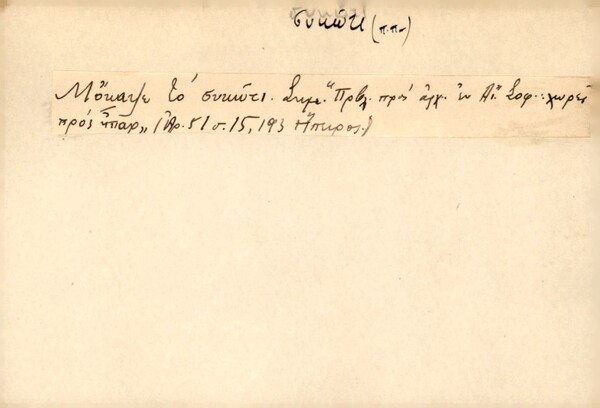 συκώτι (π.π.)
Μὄκαψε τὸ συκώτι. Σημ. "Πρβλ. πρὸς ἀρχ. ἐν Αἴ. Σοφ.: χωρεῖ
πρὸς ἧπαρ„ (Ἀρ. 51 σ. 15, 193 Ἤπειρος.)